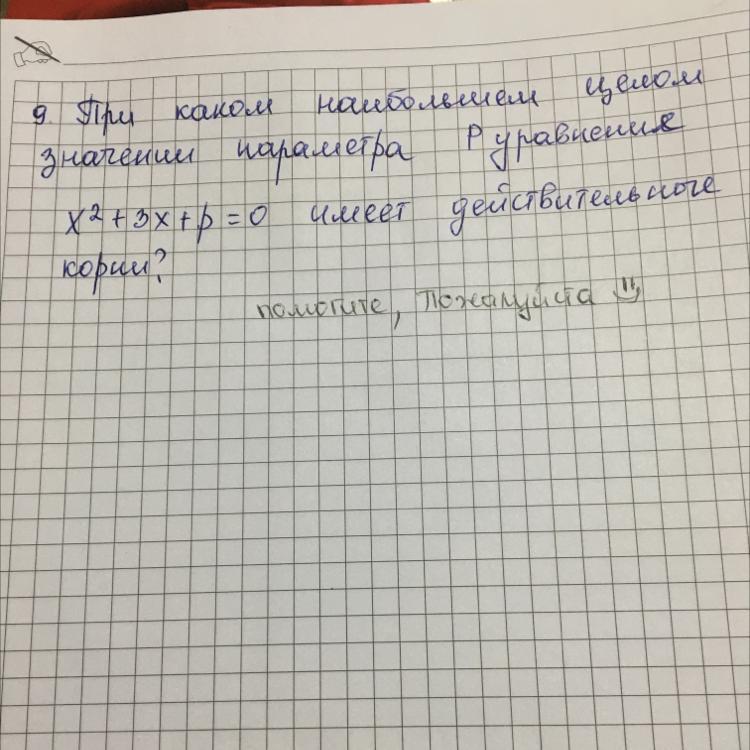 9. При каком наибольшем целом
значении параметра P уравнение
x² + 3x + p = 0 имеет действительные
корни?
помогите, пожалуйста